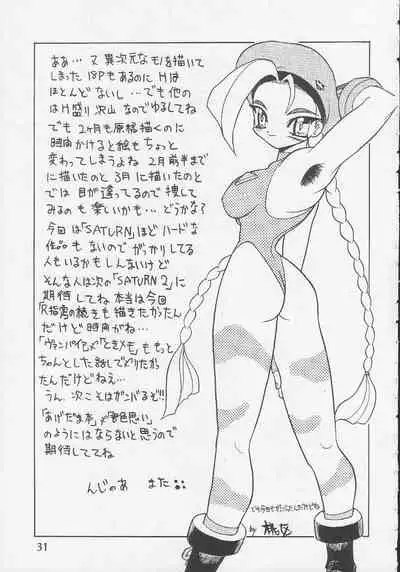 ああ…マ異次元なモノを描いて
しまった18PもあるのにHは
ほとんどないし…でも他の
はH盛り沢山なのでゆるしてね
でも2ヶ月も原稿描くのに
時間かけると絵もちょっと
変わってしまうよね 2月前半まで
に描いたのと3月に描いたのと
では目が違ってるので捜して
みるのも楽しいかも…どうかな?
今回は「SATURN」ほどハードな
作品もないのでがっかりしてる
人もいるかもしんないけど
そんな人は次の「SATURN2」に
期待してね 本当は今回
「R指定の続きも描きたかったん
だけど時間がね…
「ヴァンパイヤ」や「ときメモ」ももっと
ちゃんとした話しでやりたかっ
たんだけどねえ…
うん、次こそはガンバるぞ!!
「あげだま本」や「音色思い」
のようにはならないと思うので
期待しててね
んじゃのあ また
by
31